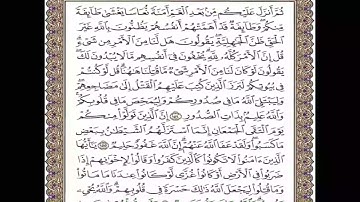 ثُمَّ أَنزَلَ عَلَيْكُم مِّنۢ بَعْدِ ٱلْغَمِّ أَمَنَةً نُّعَاسًا يَغْشَىٰ طَآئِفَةً
مِّنكُمْ ۖ وَطَآئِفَةٌ قَدْ أَهَمَّتْهُمْ أَنفُسُهُمْ يَظُنُّونَ بِٱللَّهِ غَيْرَ
ٱلْحَقِّ ظَنَّ ٱلْجَٰهِلِيَّةِ ۖ يَقُولُونَ هَل لَّنَا مِنَ ٱلْأَمْرِ مِن شَىْءٍ ۗ
قُلْ إِنَّ ٱلْأَمْرَ كُلَّهُۥ لِلَّهِ ۗ يُخْفُونَ فِىٓ أَنفُسِهِم مَّا لَا يُبْدُونَ لَكَ ۖ
يَقُولُونَ لَوْ كَانَ لَنَا مِنَ ٱلْأَمْرِ شَىْءٌ مَّا قُتِلْنَا هَٰهُنَا ۗ قُل لَّوْ كُنتُمْ
فِى بُيُوتِكُمْ لَبَرَزَ ٱلَّذِينَ كُتِبَ عَلَيْهِمُ ٱلْقَتْلُ إِلَىٰ مَضَاجِعِهِمْ ۖ
وَلِيَبْتَلِىَ ٱللَّهُ مَا فِى صُدُورِكُمْ وَلِيُمَحِّصَ مَا فِى قُلُوبِكُمْ ۗ
وَٱللَّهُ عَلِيمٌۢ بِذَاتِ ٱلصُّدُورِ ١٥٤ إِنَّ ٱلَّذِينَ تَوَلَّوْا۟ مِنكُمْ
يَوْمَ ٱلْتَقَى ٱلْجَمْعَانِ إِنَّمَا ٱسْتَزَلَّهُمُ ٱلشَّيْطَٰنُ بِبَعْضِ
مَا كَسَبُوا۟ ۖ وَلَقَدْ عَفَا ٱللَّهُ عَنْهُمْ ۗ إِنَّ ٱللَّهَ غَفُورٌ حَلِيمٌ ١٥٥ يَٰٓأَيُّهَا
ٱلَّذِينَ ءَامَنُوا۟ لَا تَكُونُوا۟ كَٱلَّذِينَ كَفَرُوا۟ وَقَالُوا۟ لِإِخْوَٰنِهِمْ إِذَا
ضَرَبُوا۟ فِى ٱلْأَرْضِ أَوْ كَانُوا۟ غُزًّى لَّوْ كَانُوا۟ عِندَنَا مَا مَاتُوا۟
وَمَا قُتِلُوا۟ لِيَجْعَلَ ٱللَّهُ ذَٰلِكَ حَسْرَةً فِى قُلُوبِهِمْ ۗ وَٱللَّهُ يُحْىِۦ